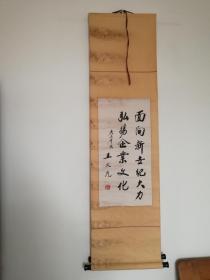 面向新世纪大力
弘扬企業文化